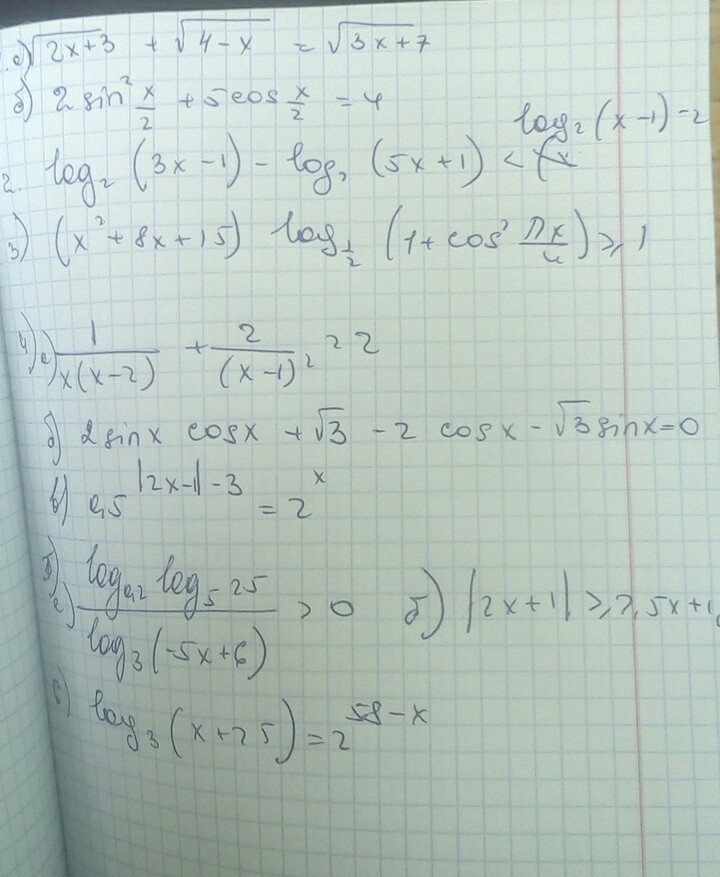 1. а) √(2x+3) + √(4-x) = √(3x+7)
б) 2 sin² x/2 + 5 cos x/2 = 4
log₂ (x-1) - 2
2. log₂ (3x-1) - log₂ (5x+1) <
3) (x²+8x+15) log_{1/2} (1+cos² πx/4) ≥ 1
4) а) 1/(x(x-2)) + 2/(x-1)² = 2
б) 2 sinx cosx + √3 - 2 cosx - √3 sinx = 0
в) 0,5^{|2x-1|-3} = 2^x
5) а) (log_{0,2} log₅ 25)/(log₃(-5x+6)) > 0 б) |2x+1| ≥ 2,5x+1
log₃ (x+25) = 2^{58-x}